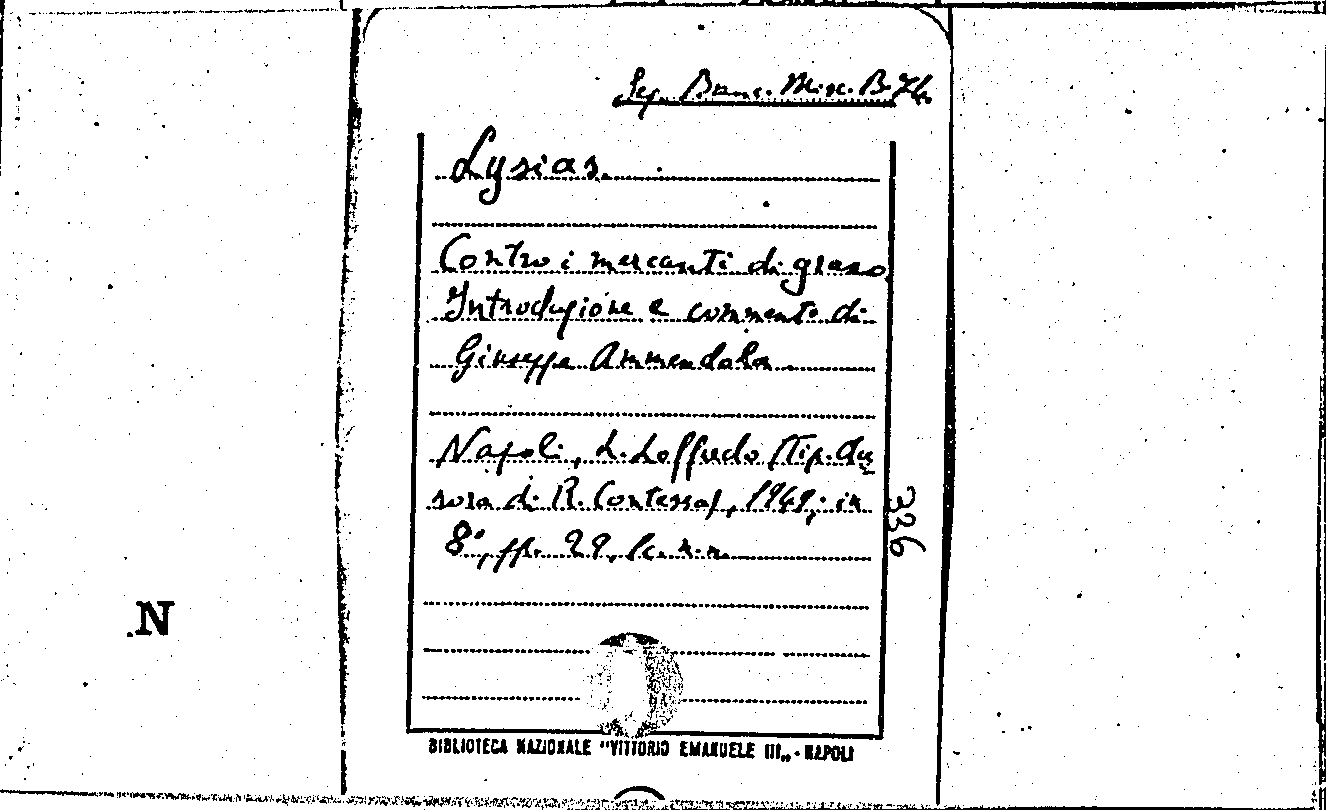 Seg. Banc. Misc. B. 74
Lysias.
Contro i mercanti di grano
Introduzione e commento di
Giuseppe Ammendola
Napoli, L. Loffredo (Tip. Au
rora di R. Contessa), 1949; in
8°, pp. 29, 1c. n.n.
336
.N
BIBLIOTECA NAZIONALE "VITTORIO EMANUELE III„ - NAPOLI